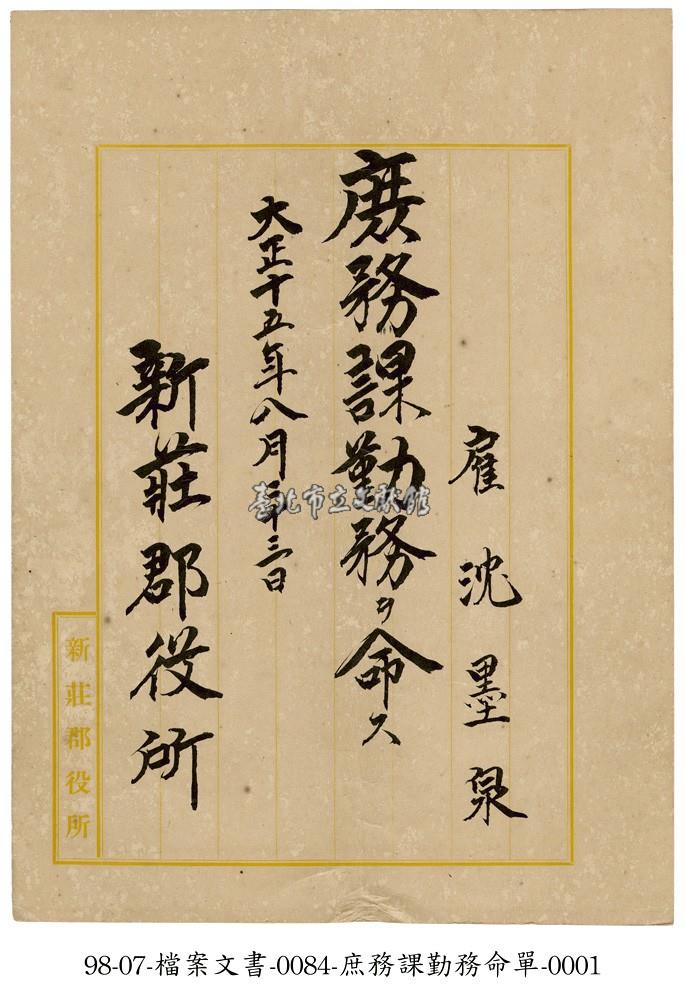 雇 沈墨泉
庶務課勤務ヲ命ス
大正十五年八月二十三日
新莊郡役所
新莊郡役所
臺北市立文獻館
98-07-檔案文書-0084-庶務課勤務命單-0001